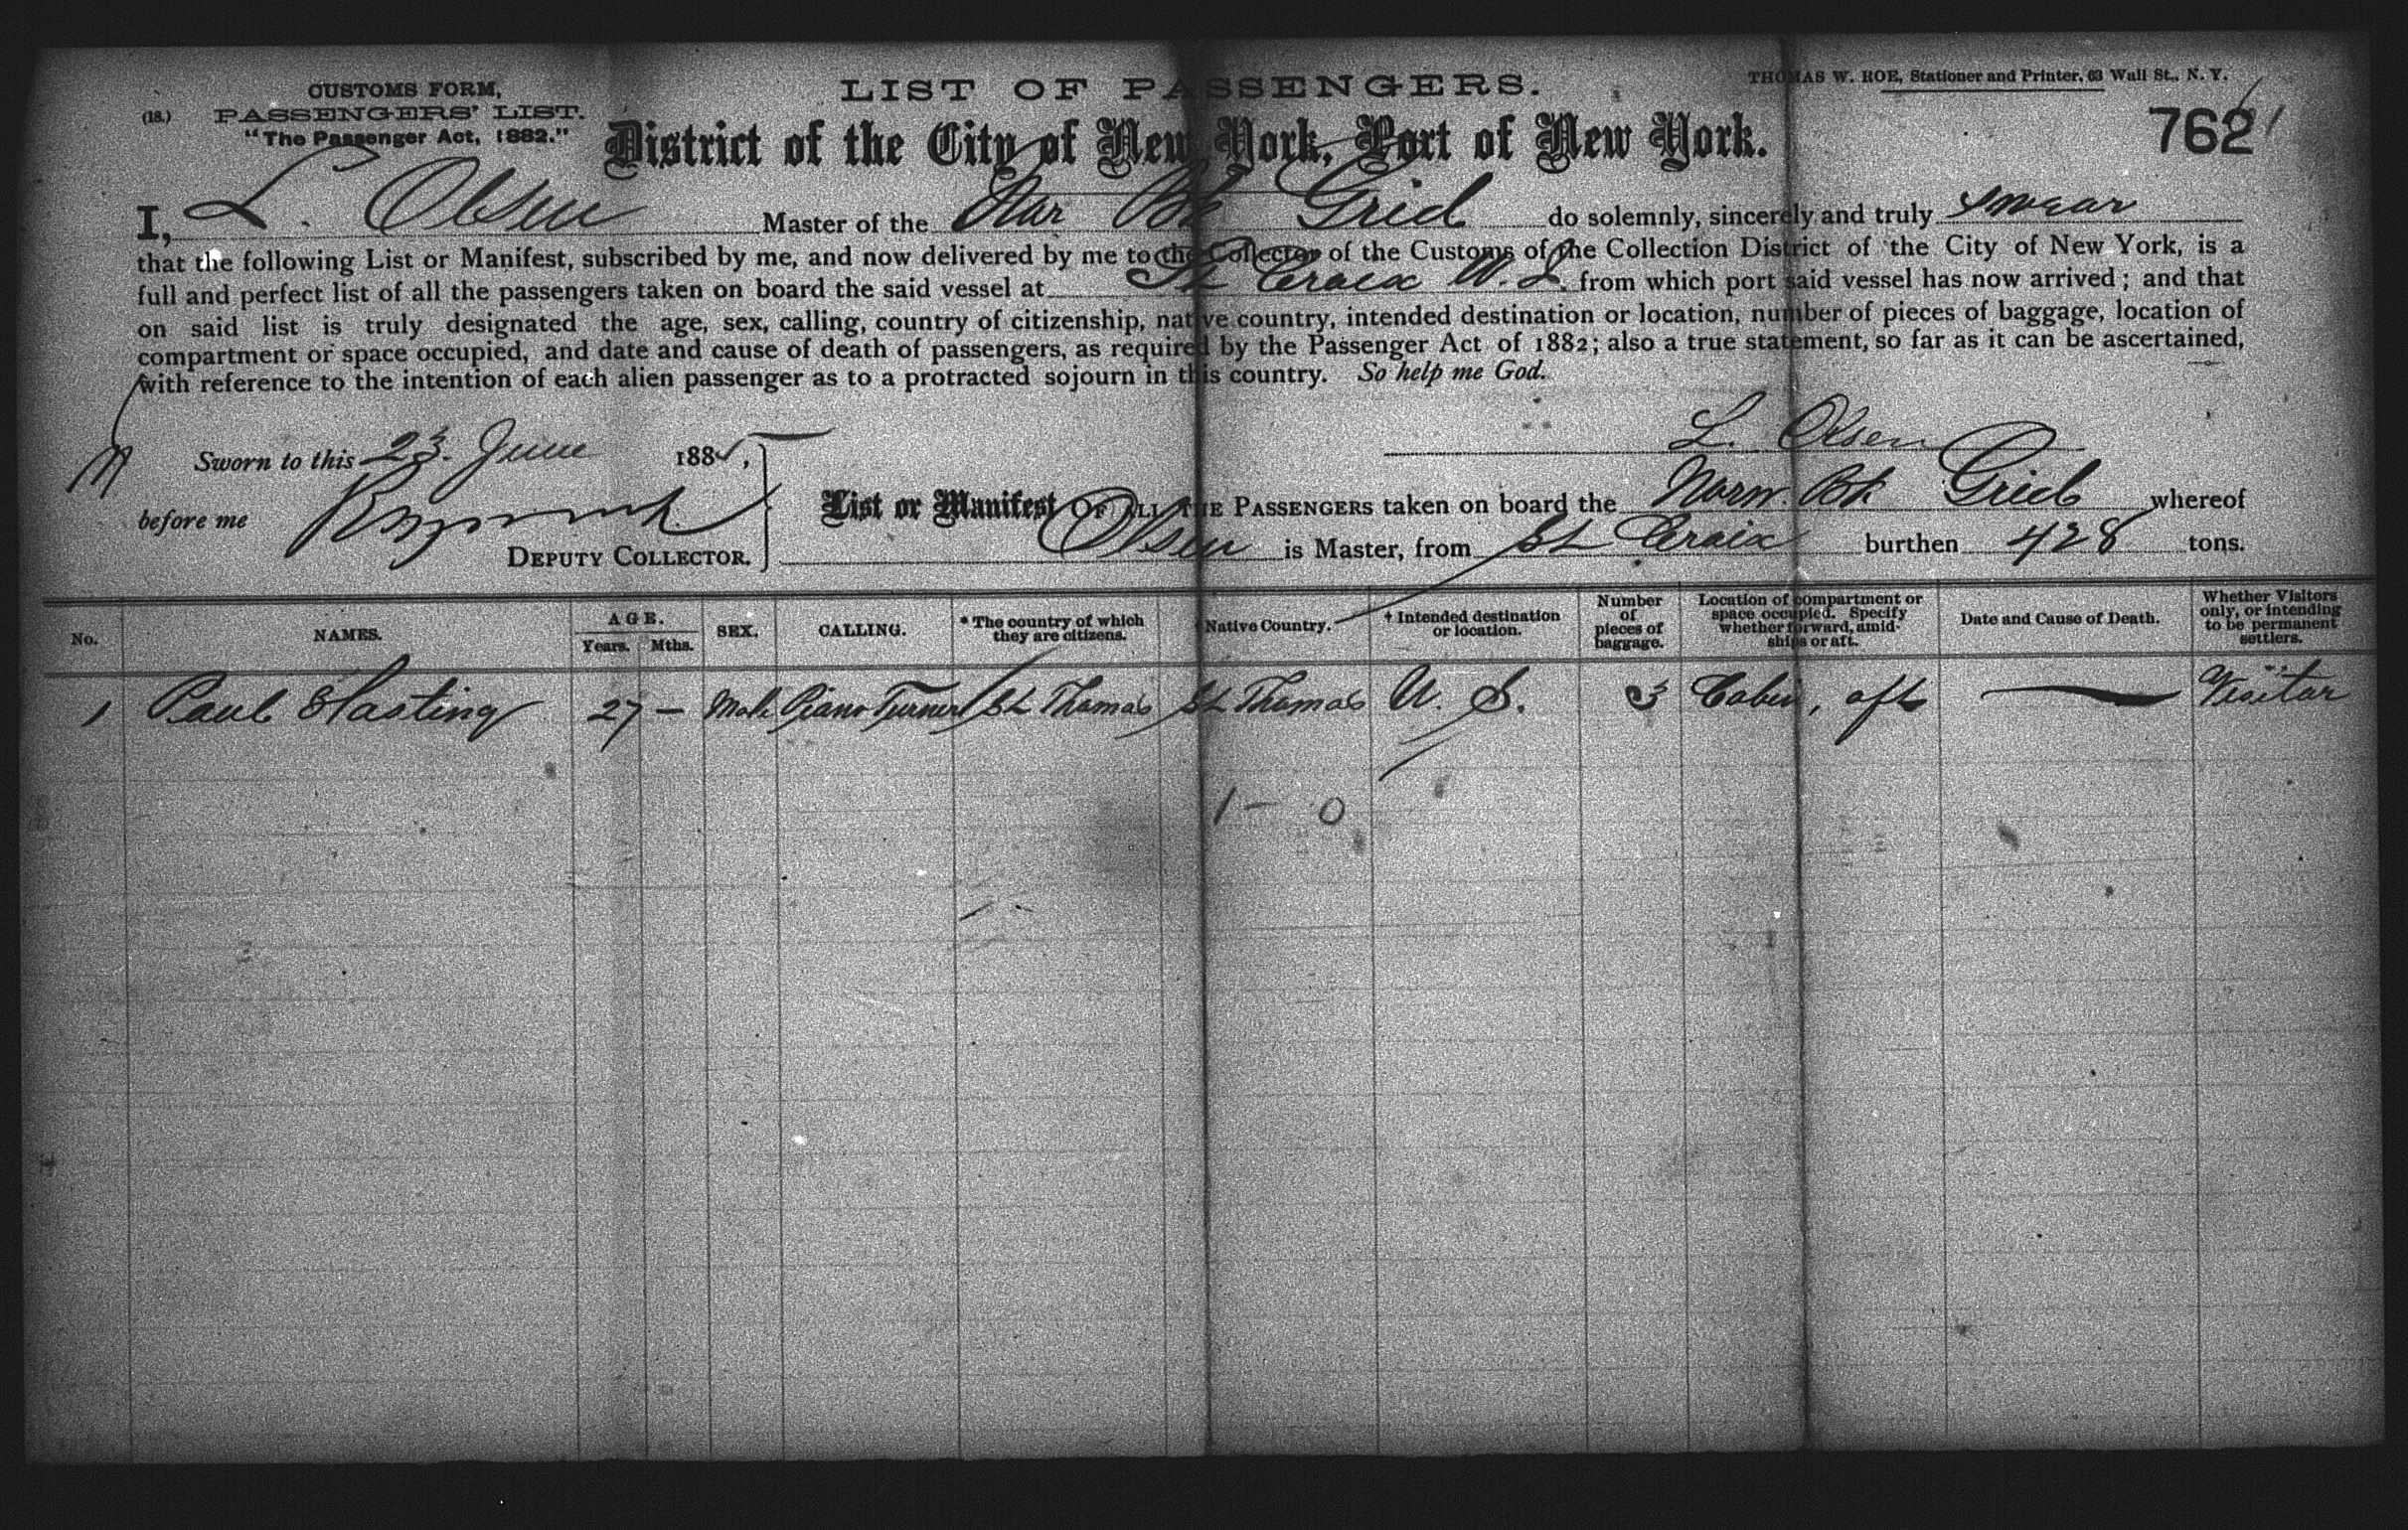 CUSTOMS FORM,
(18.) PASSENGERS' LIST.
"The Passenger Act, 1882."
LIST OF PASSENGERS.
THOMAS W. ROE, Stationer and Printer, 63 Wall St., N. Y.
District of the City of New York, Port of New York.
762
I, L. Olsen Master of the Nar Bk Grid do solemnly, sincerely and truly swear
that the following List or Manifest, subscribed by me, and now delivered by me to the Collector of the Customs of the Collection District of the City of New York, is a
full and perfect list of all the passengers taken on board the said vessel at St Croix W. I. from which port said vessel has now arrived; and that
on said list is truly designated the age, sex, calling, country of citizenship, native country, intended destination or location, number of pieces of baggage, location of
compartment or space occupied, and date and cause of death of passengers, as required by the Passenger Act of 1882; also a true statement, so far as it can be ascertained,
with reference to the intention of each alien passenger as to a protracted sojourn in this country. So help me God.
L. Olsen
Sworn to this 23. June 1885,
before me
DEPUTY COLLECTOR.
List or Manifest OF ALL THE PASSENGERS taken on board the Norw. Bk Grid whereof
Olsen is Master, from St Croix burthen 428 tons.
No. NAMES. AGE. Years. Mths. SEX. CALLING. * The country of which they are citizens. Native Country. † Intended destination or location. Number of pieces of baggage. Location of compartment or space occupied. Specify whether forward, amidships or aft. Date and Cause of Death. Whether Visitors only, or intending to be permanent settlers.
1 Paul Hasting 27 — Male Piano Turner St Thomas St Thomas U. S. 3 Cabin, aft — Visitor
1 - 0